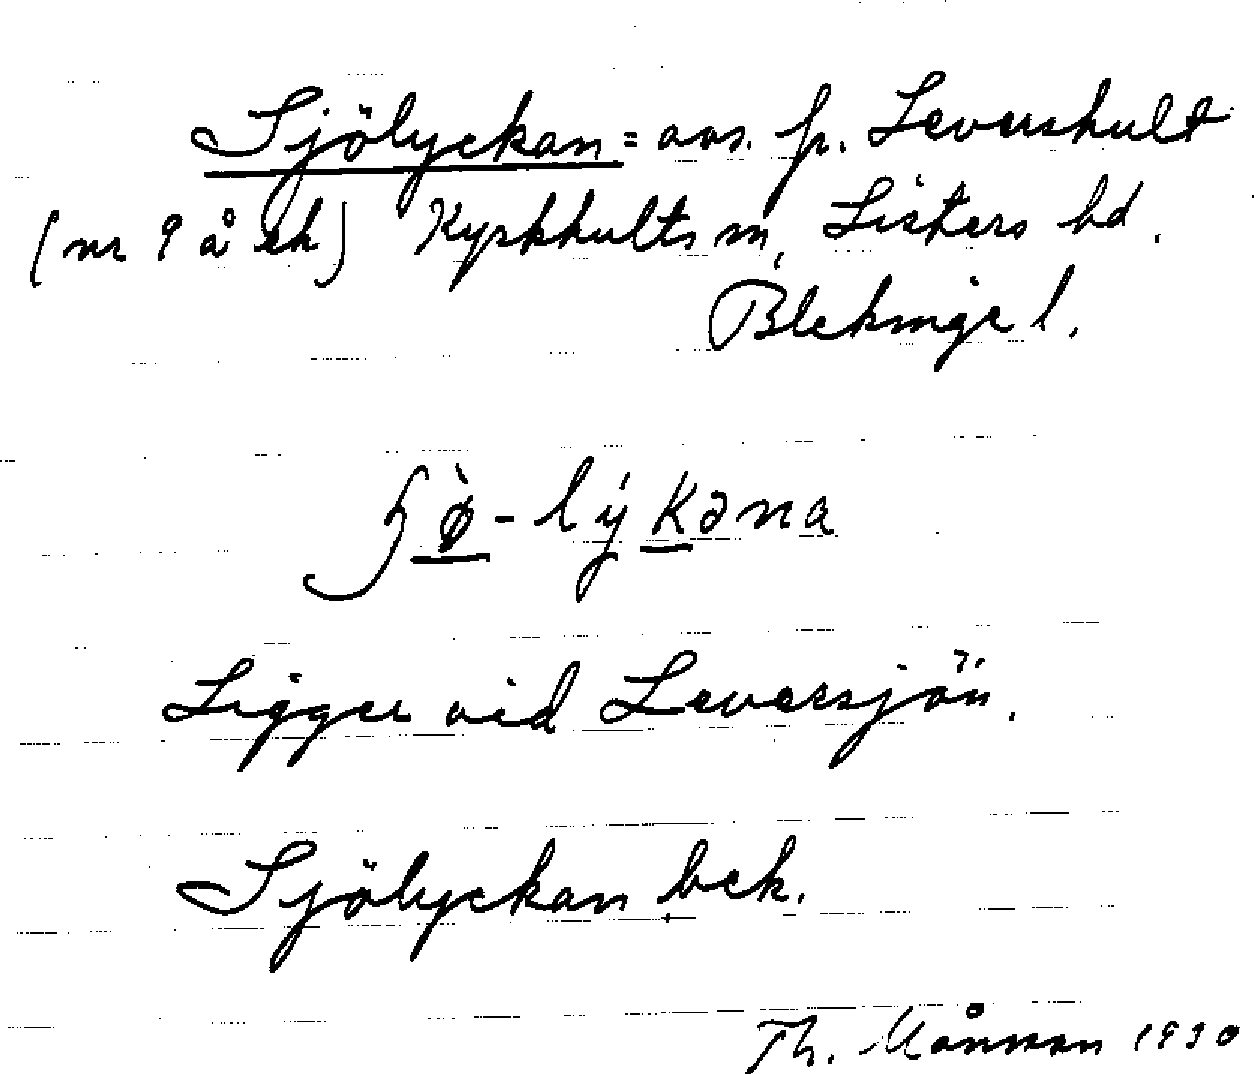 Sjölyckan = avs. fr. Levershult
(nr 9 å ek) Kyrkhults sn, Listers hd.
Blekinge l.
ʃø̀-lýkəna
Ligger vid Leversjön.
Sjölyckan bek.
Th. Månsson 1930